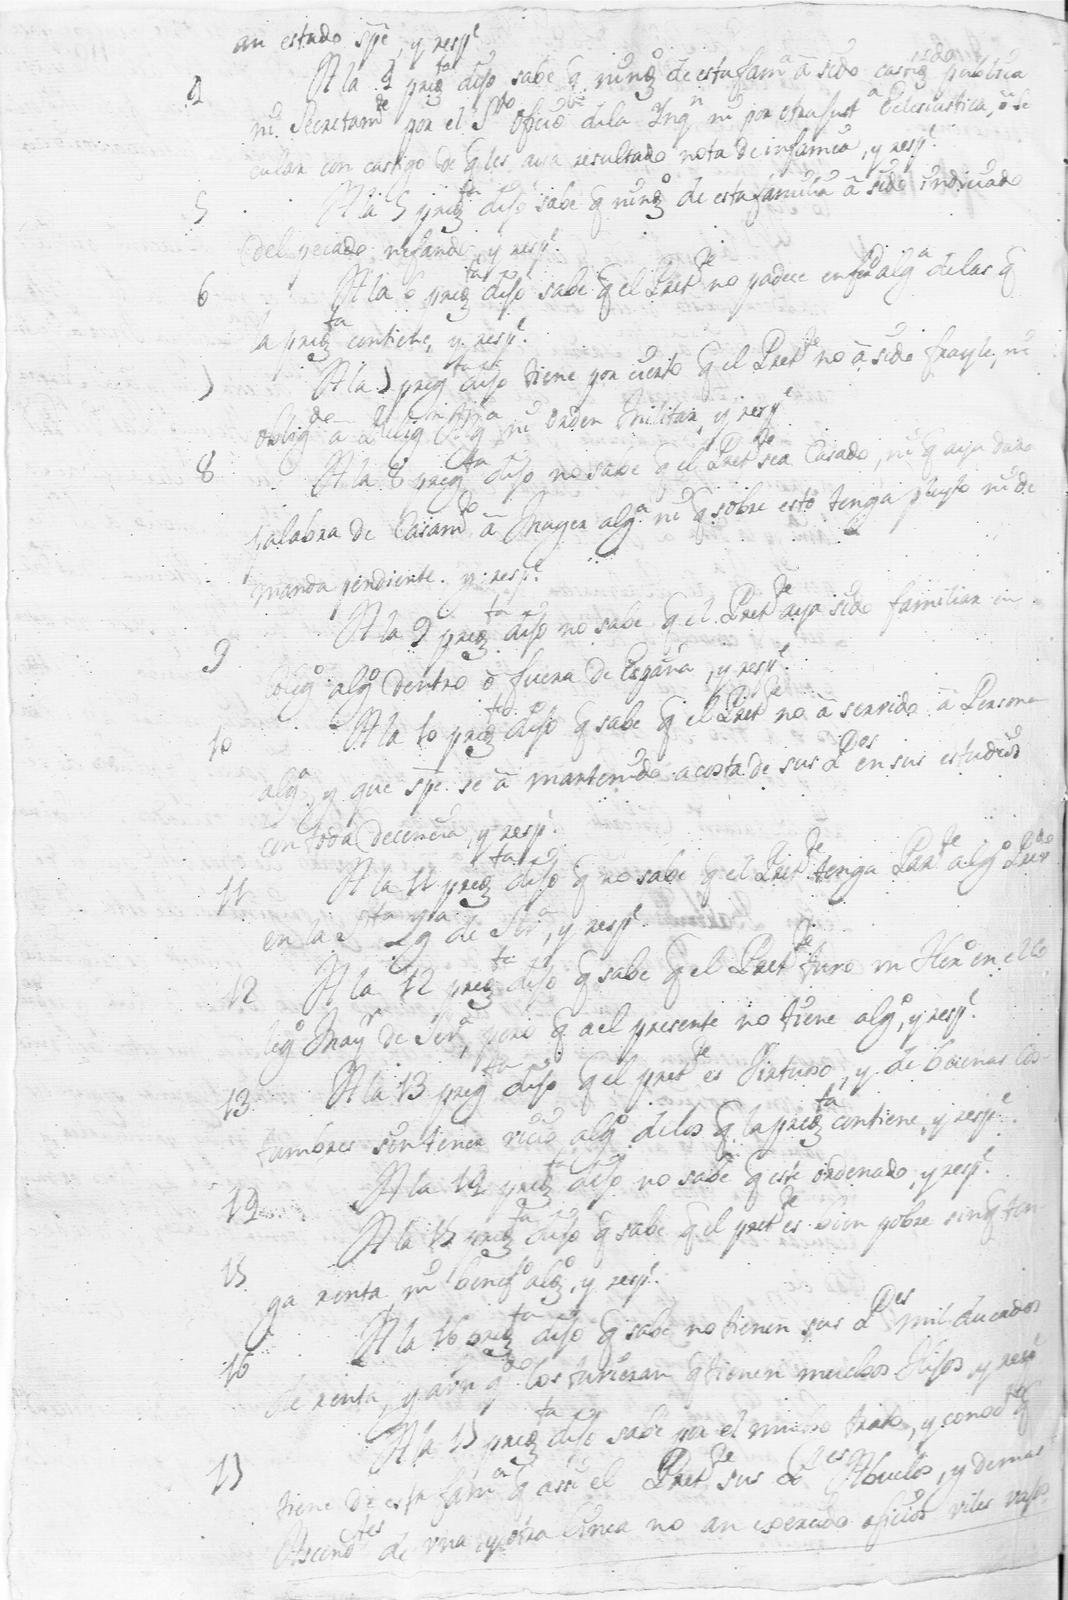 an estado spe, y respe
4 A la 4 pregta dijo sabe q ningo de esta fama a sido castigdo publica
ni Secretamte por el Sto oficio de la Inqn ni por otra Justa Eclesiastica, o se
cular con castigo de q les aia resultado nota de infamia, y respe.
5 A la 5 pregta dijo sabe q ningo de esta familia â sido indiciado
del pecado nefando, y respe.
6 A la 6 pregta dijo sabe q el Prette no padece enfd alga de las q
la pregta contiene, y respe.
7 A la 7 pregta dijo tiene por cierto q el Prette no â sido frayle, ni
obligdo â Relign ni orden Militar, y respe
8 A la 8 pregta dijo no sabe q el Prette sea Casado, ni q aya dado
palabra de Casamto â Muger alga ni q sobre esto tenga pleyto ni de
manda pendiente. y respe.
9 A la 9 pregta dijo no sabe q el Prette aya sido familiar en
Colego algo dentro ô fuera de España, y respe.
10 A la 10 pregta dijo q sabe q el Prette no â servido â Persona
alga, y que spe se â mantenido a costa de sus Pes en sus estudios
con toda decencia, y respe.
11 A la 11 pregta dijo q no sabe q el Prette tenga Parte algo
en la Sta Yga de Seva, y respe.
12 A la 12 pregta dijo q sabe q el Prette tuvo un Hero en el Co
lego Mayr de Seva, pero q a el presente no tiene algo, y respe.
13 A la 13 pregta dijo q el prette es Virtuoso, y de buenas cos
tumbres sin tener vicio algo de los q la pregta contiene, y respe.
14 A la 14 pregta dijo no sabe q este ordenado, y respe.
15 A la 15 pregta dijo q sabe q el prette es bien pobre sin q ten
ga renta ni benefo algo, y respe.
16 A la 16 pregta dijo q sabe no tienen sus Pes mil ducados
de renta, y aun qdo los tuvieran q tienen muchos hijos, y respe
17 A la 17 pregta dijo sabe por el mucho trato, y conocto q
tiene de esta fama q assi el Prette sus Pes Abuelos, y demas
Ascendtes de una y otra linea no an exercido oficios viles vajos